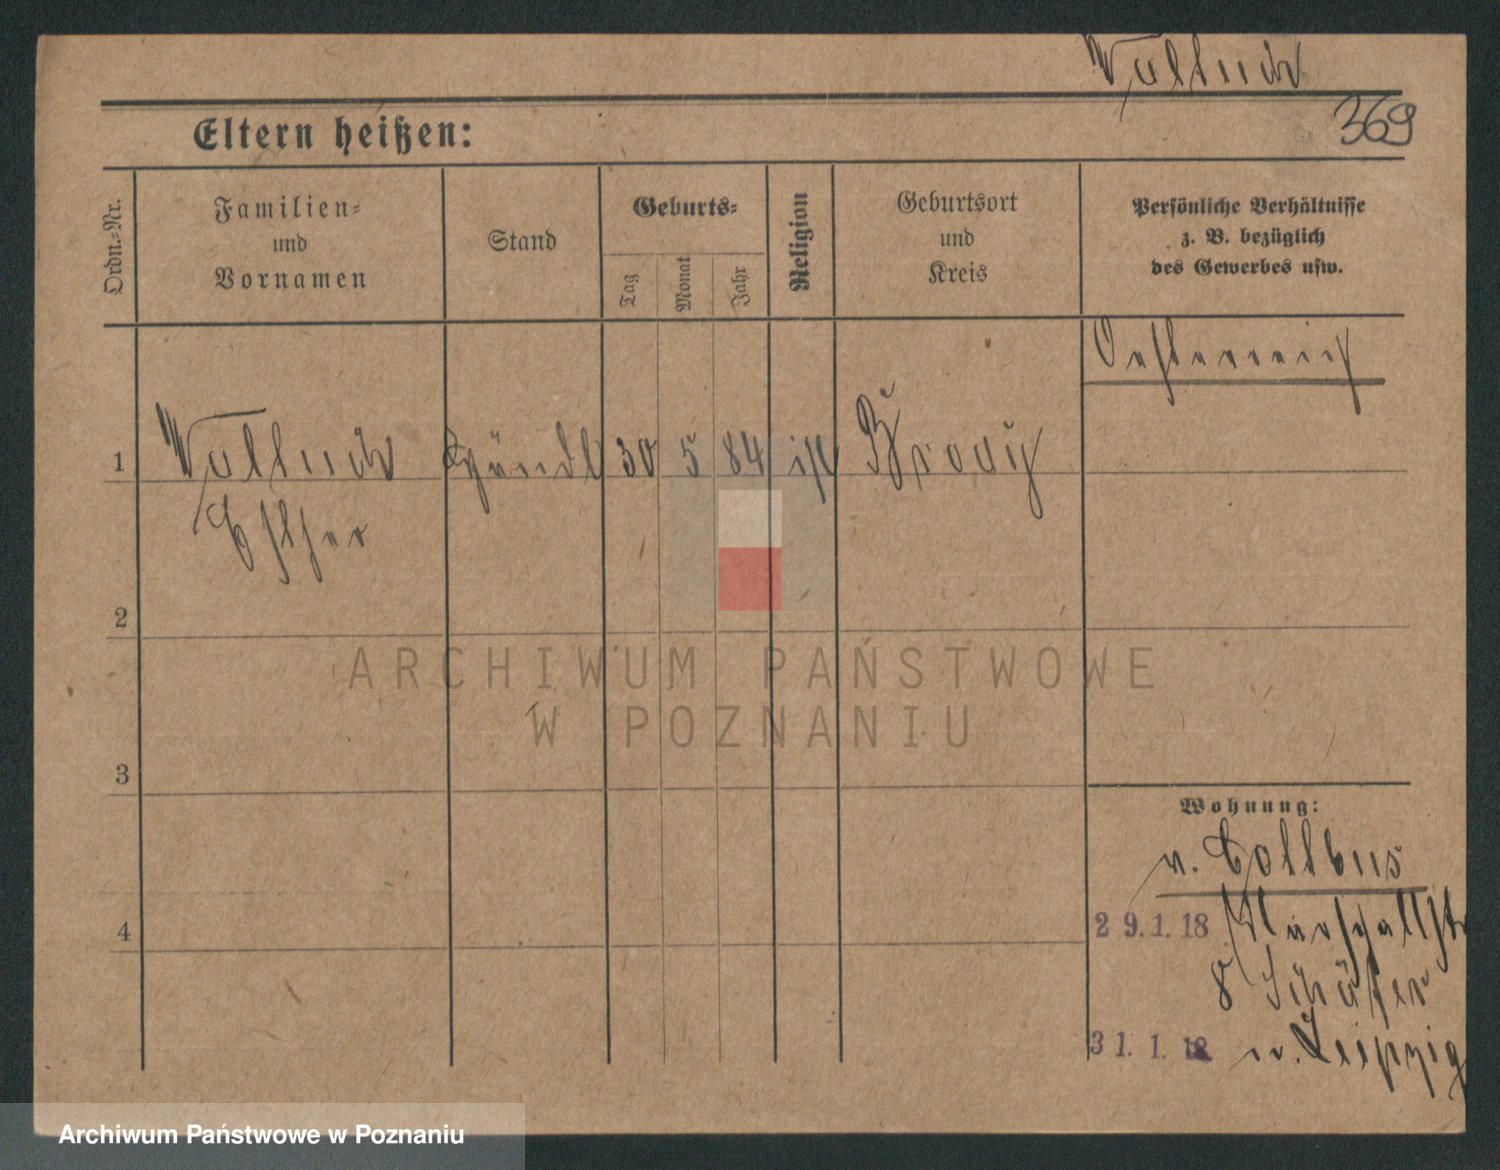 Wollnik
369
Eltern heißen:
Ordn.-Nr.
Familien-
und
Vornamen
Stand
Geburts-
Tag
Monat
Jahr
Religion
Geburtsort
und
Kreis
Persönliche Verhältnisse
z. B. bezüglich
des Gewerbes usw.
Oesterreich
1
30 5 84 Brody
Esther
2
ARCHIWUM PAŃSTWOWE
W POZNANIU
3
Wohnung:
v. Cottbus
4
29.1.18 Marschallstr
8 Schäfer
31.1.18 n. Leipzig
Archiwum Państwowe w Poznaniu